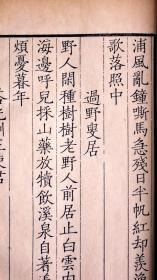 浦風亂鐘嘶馬急殘日半帆紅却羨漁
歌落照中
過野叟居
野人閑種樹樹老野人前居止白雲内
海邊呼兒採山藥放犢飲溪泉自著
煩憂暮年